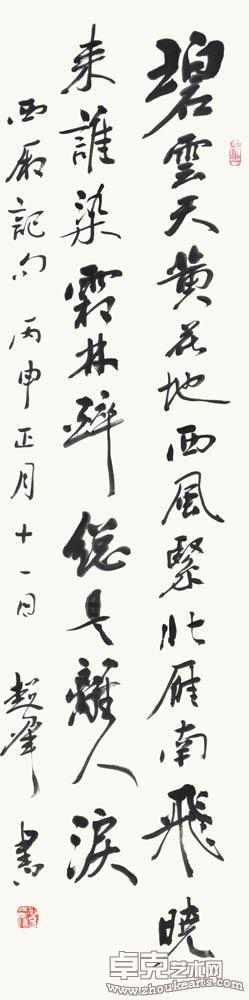 碧雲天黄花地西風緊北雁南飛曉
来誰染霜林醉總是離人淚
西廂記句 丙申正月十一日 超峰 書
卓克艺术网
www.zhuokearts.com